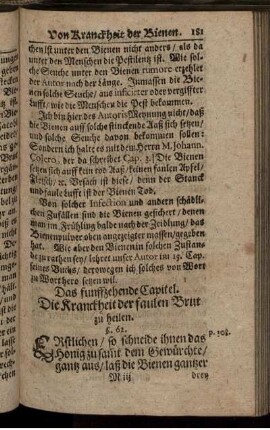 Von Kranckheit der Bienen. 181
chen ist unter den Bienen nicht anders / als da
unter den Menschen die Pestilentz ist. Wie sol-
che Seuche unter den Bienen rumore erzehlet
der Autor nach der Länge. Inmassen die Bie-
nen solche Seuche / aus inficieter oder vergiffter
Lufft / wie die Menschen die Pest bekommen.
Ich bin hier des Autoris Meynung nicht / daß
die Bienen auff solche stinckende Aaß sich setzen /
und solche Seuche davon bekommen sollen:
Sondern ich halte es mit dem Herrn M. Johann.
Colero, der da schreibet Cap. 3. Die Bienen
setzen sich auff kein tod Aaß / keinen faulen Apfel /
Fleisch / ꝛc. Ursach ist diese / denn der Stanck
und faule Lufft ist der Bienen Tod.
Von solcher Infection und andern schädli-
chen Zufällen sind die Bienen gesichert / denen
man im Frühling balde nach der Zeidlung / das
Bienenpulver oben angezeigter massen / gegeben
hat. Wie aber den Bienen in solchen Zustande
zu rathen sey / lehret unser Autor im 15. Cap.
seines Buchs / derowegen ich solches von Wort
zu Wort hero setzen wil.
Das funffzehende Capitel.
Die Kranckheit der faulen Brut
zu heilen.
§. 62.
ERstlichen / so schneide ihnen das
Honig zu samt dem Gewürchte /
gantz aus / laß die Bienen gantzer
M iij